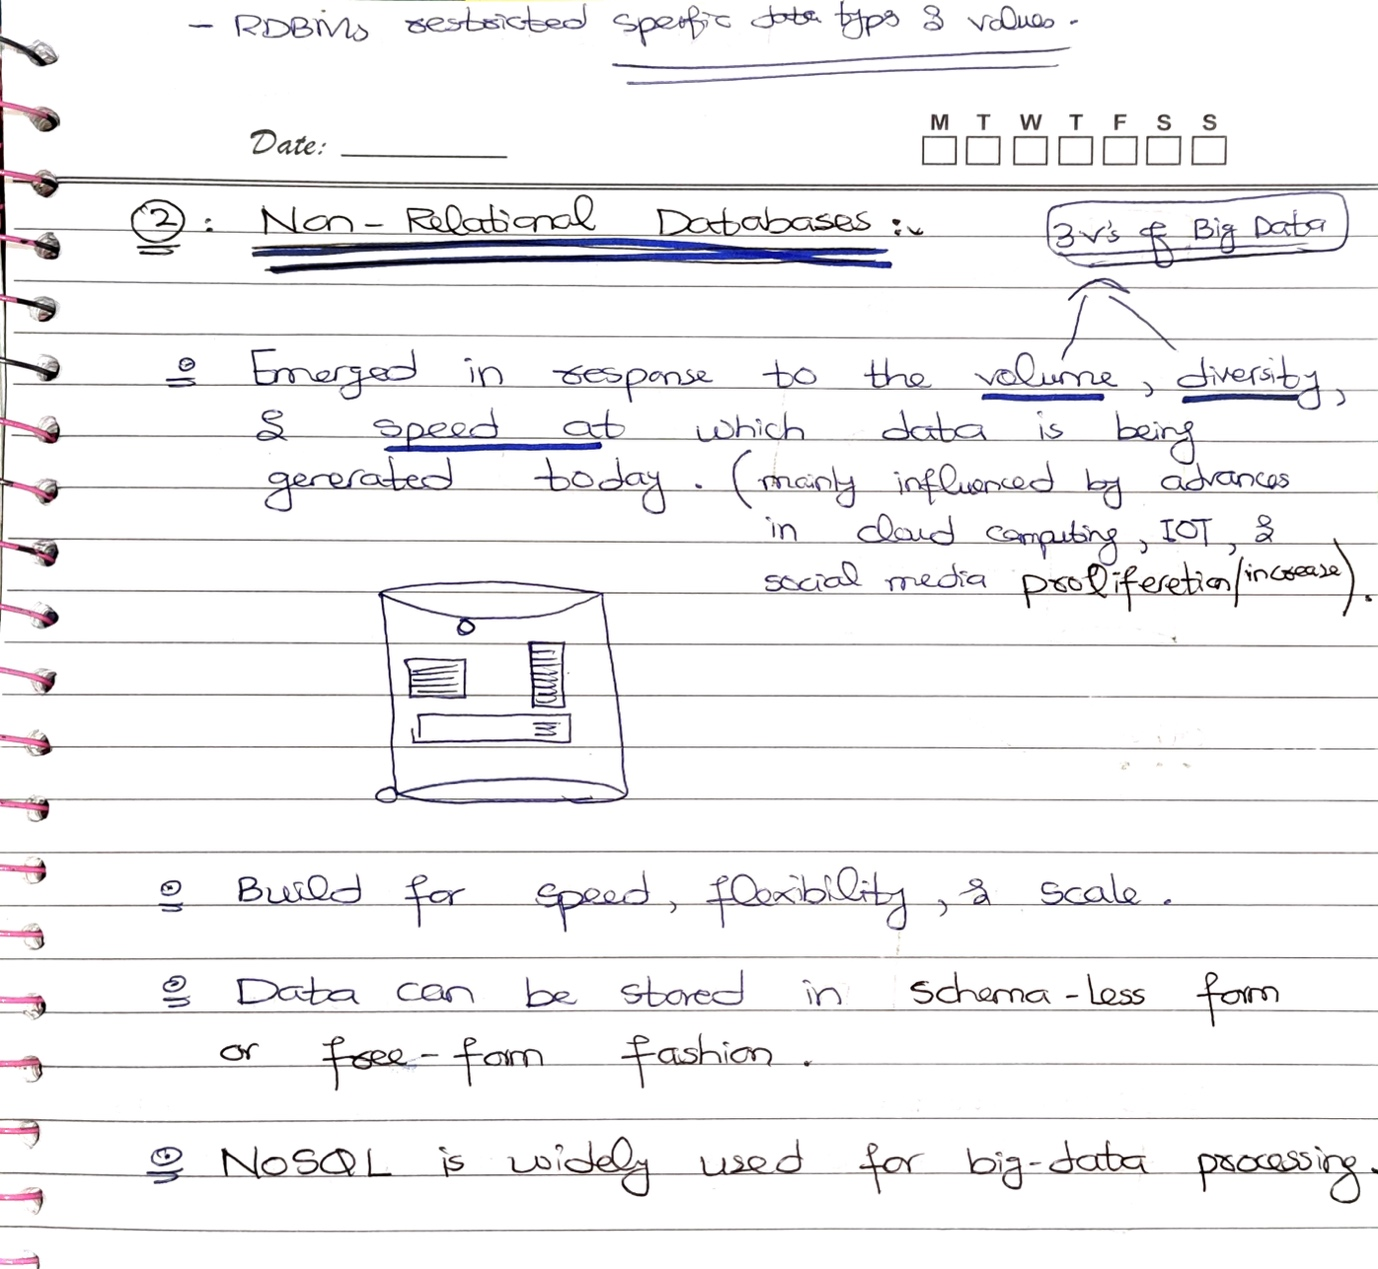 - RDBMs restricted specific data typs & values.
Date:
M T W T F S S
2: Non-Relational Databases:
3 V's of Big Data
Emerged in response to the volume, diversity,
& speed at which data is being
generated today. (mainly influenced by advances
in cloud computing, IOT, &
social media proliferetion/increase).
Build for speed, flexibility, & scale.
Data can be stored in schema-less form
or free-form fashion.
NoSQL is widely used for big-data processing.